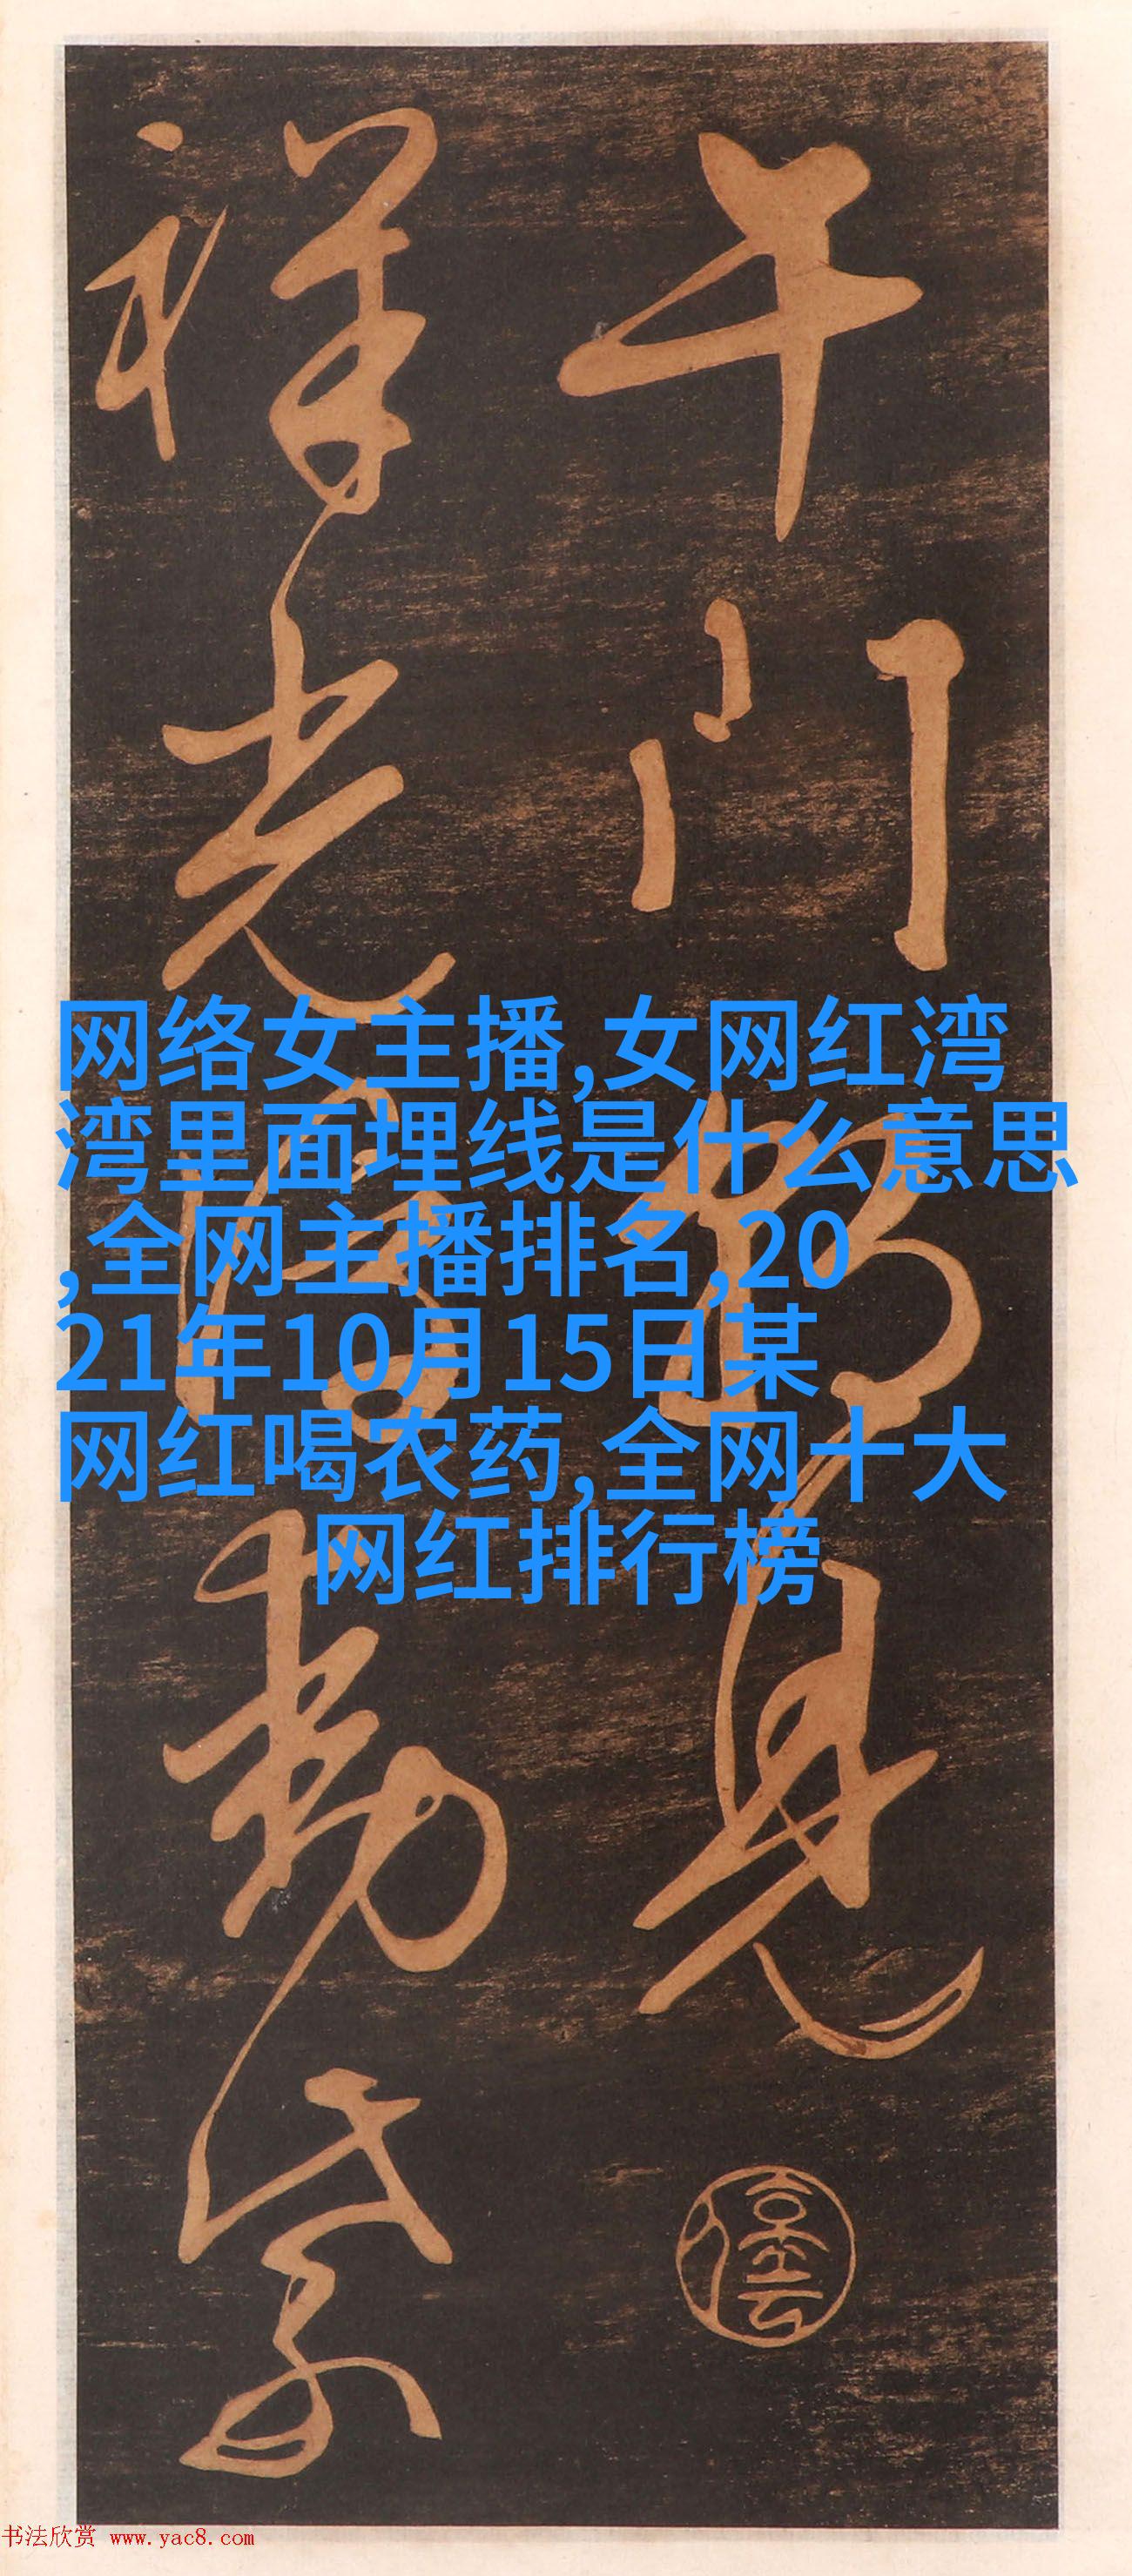 午門
見
祥光
動紫
网络女主播,女网红湾
湾里面埋线是什么意思
,全网主播排名,20
21年10月15日某
网红喝农药,全网十大
网红排行榜
书法欣赏 www.yac8.com